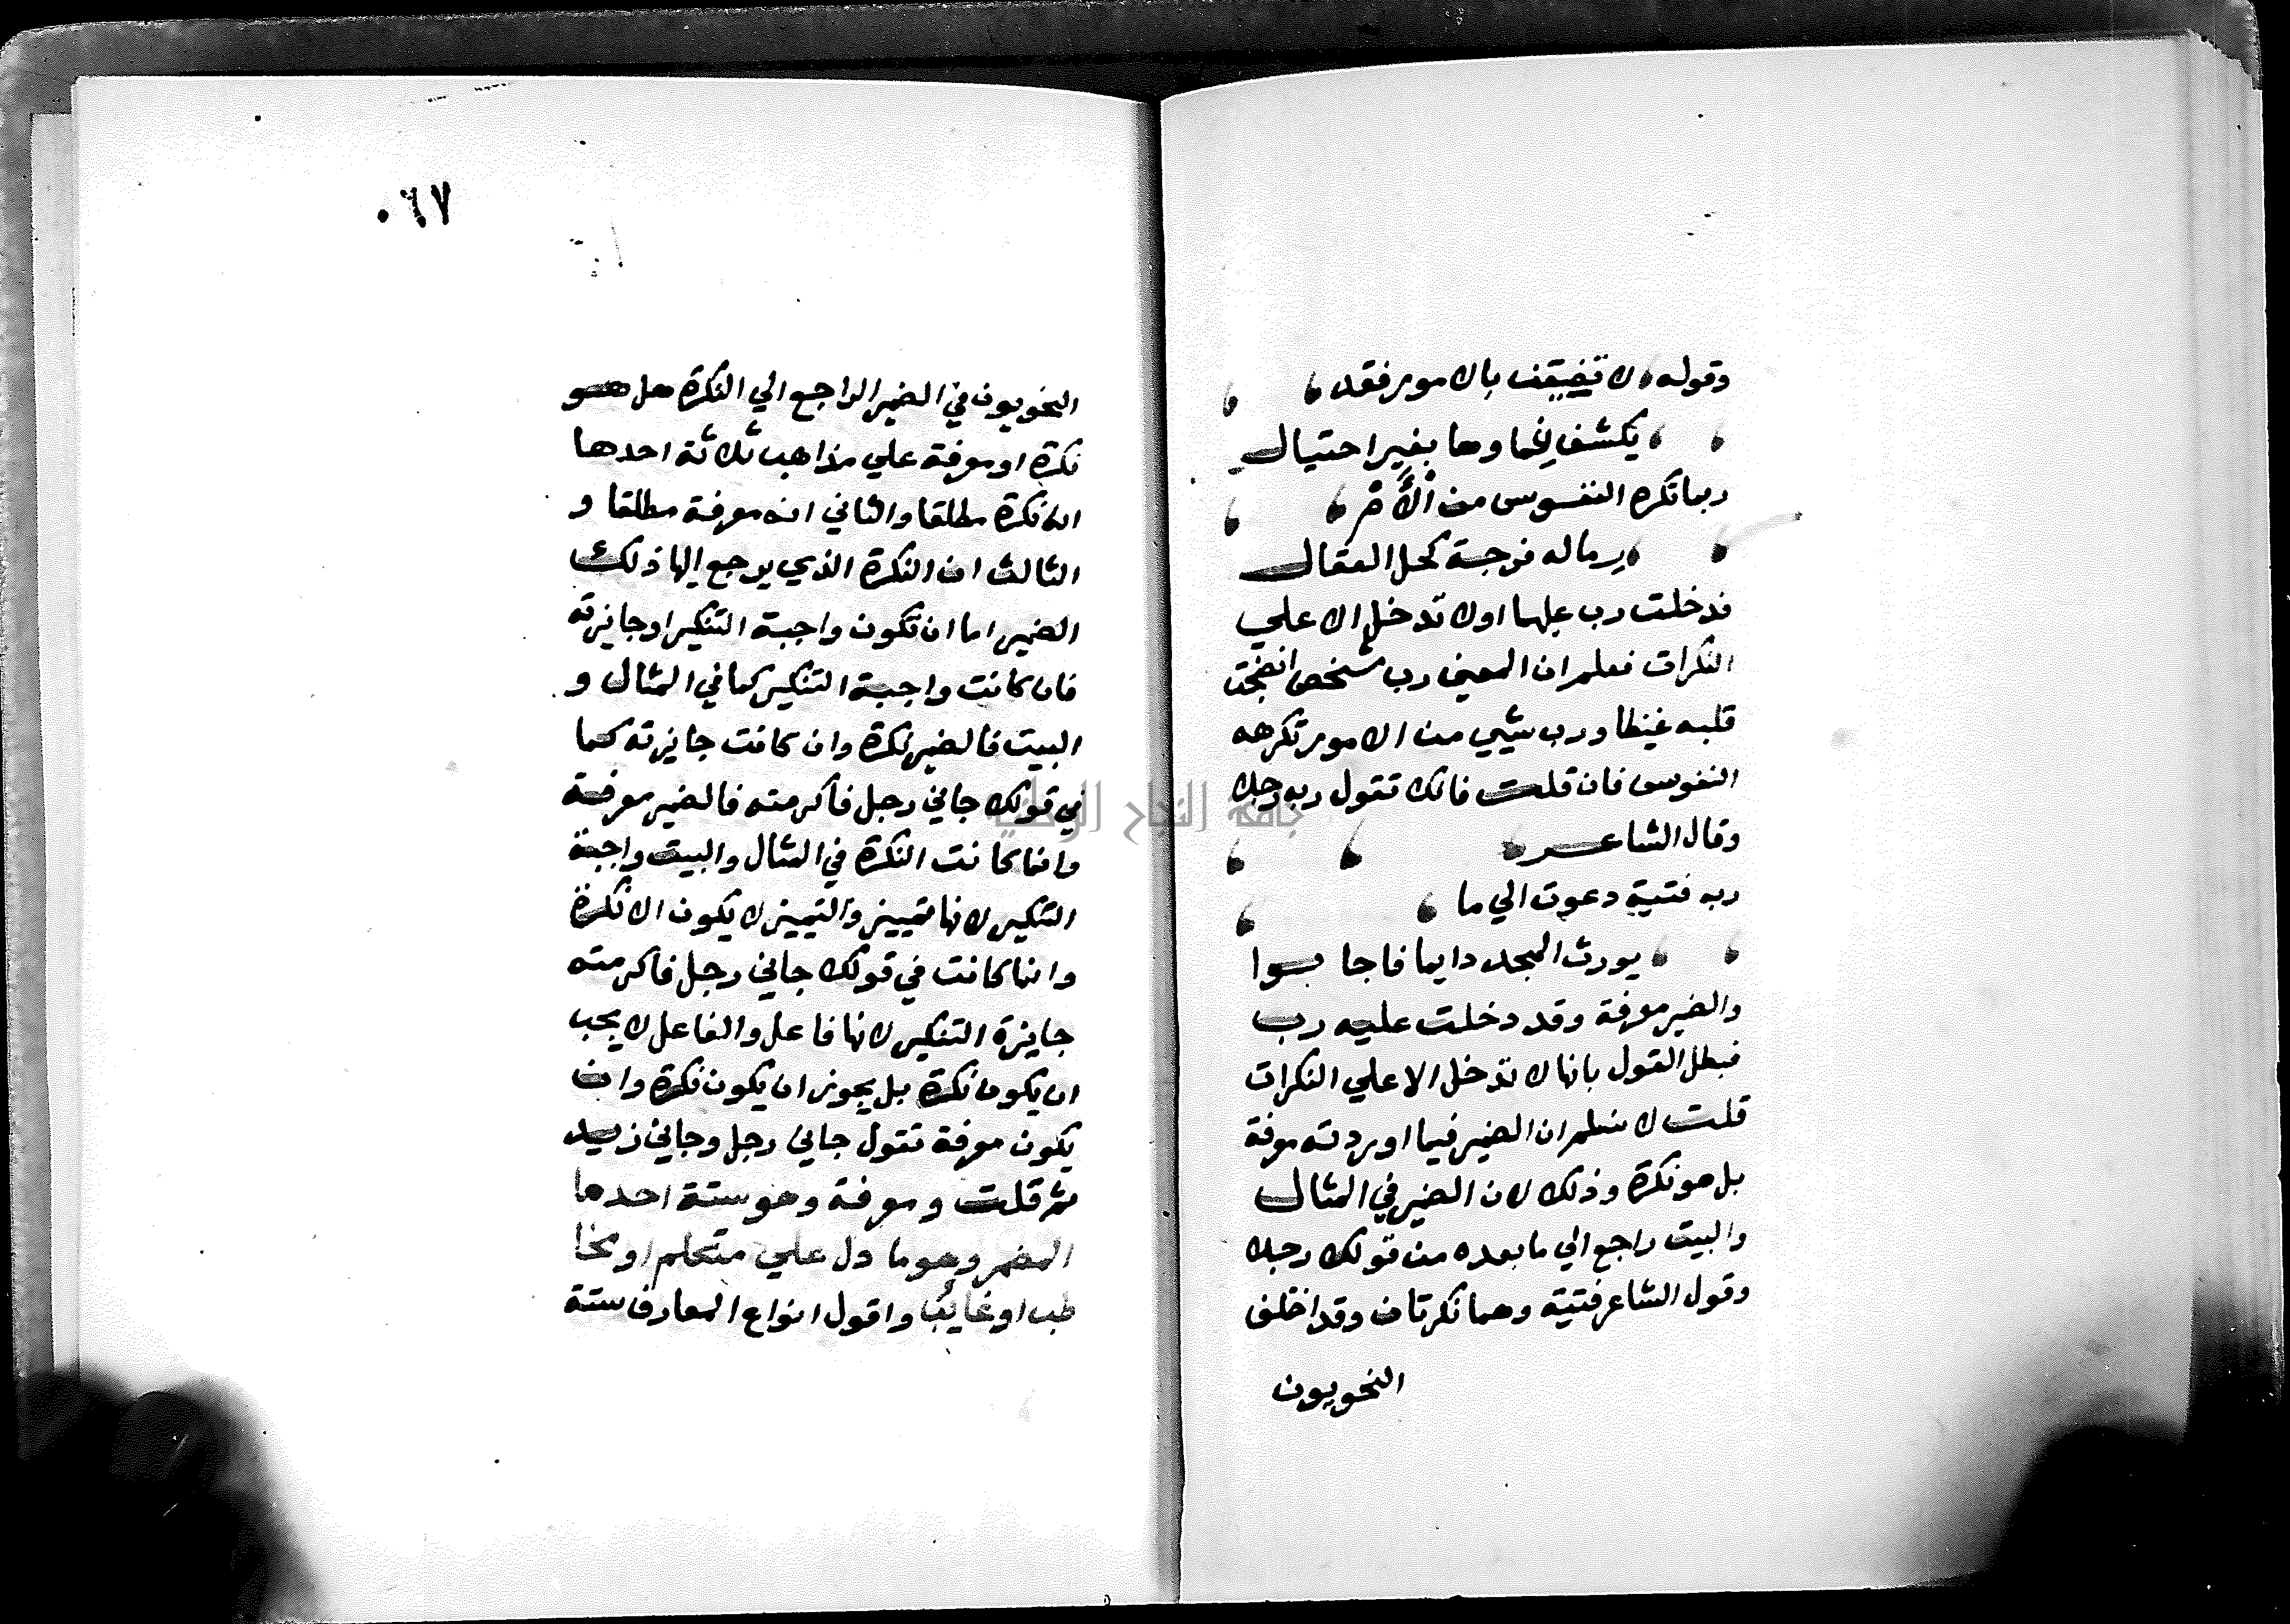 وقوله لا تضيقن بالامور فقد
يكشف غماوها بغير احتيال
ربما تكره النفوس من الأمر
ر ماله فرجة كحل العقال
فدخلت رب عليها اولا تدخل الا علي
النكرات فعلم ان المعني رب شخص انضجت
قلبه غيظا ورب شيي من الامور تكرهه
النفوس فان قلت فانك تقول ربه رجلا
وقال الشاعر
ربه فتية دعوت الي ما
يورث المجد دايما فاجابوا
والضمير معرفة وقد دخلت عليه رب
فبطل القول بانها لا تدخل الا علي النكرات
قلت لا نسلم ان الضمير فيما اوردته معرفة
بل هو نكرة وذلك لان الضمير في المثال
والبيت راجع الي ما بعده من قولك رجلا
وقول الشاعر فتية وهما نكرتان وقد اختلف
النحويون
٠٦٧
النحويون في الضمير الراجع الي النكرة هل هو
نكرة او معرفة علي مذاهب ثلاثة احدها
انه نكرة مطلقا والثاني انه معرفة مطلقا و
الثالث ان النكرة الذي يرجع اليها ذلك
الضمير اما ان تكون واجبة التنكير او جايزته
فان كانت واجبة التنكير كما في المثال و
البيت فالضمير نكرة وان كانت جايزته كما
في قولك جاني رجل فأكرمته فالضمير معرفة
وانما كانت النكرة في المثال والبيت واجبة
التنكير لانها تمييز والتمييز لا يكون الا نكرة
وانما كانت في قولك جاني رجل فاكرمته
جايزة التنكير لانها فاعل والفاعل لا يجب
ان يكون نكرة بل يجوز ان يكون نكرة وان
يكون معرفة تقول جاني رجل وجاني زيد
ثم قلت ومعرفة وهو ستة احدها
المضمر وهو ما دل علي متكلم او مخا
طب او غايب واقول انواع المعارف ستة
جامعة النجاح الوطنية